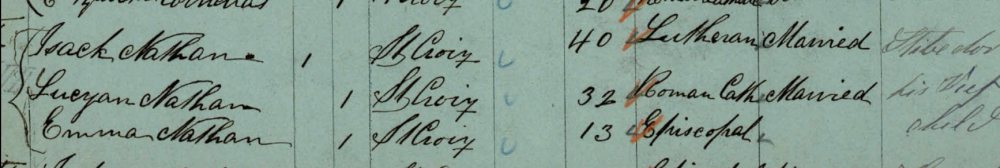 Isack Nathan 1 St Croix 40 Lutheran Married
Lucyan Nathan 1 St Croix 32 Roman Cath Married his Vief
Emma Nathan 1 St Croix 13 Episcopal child